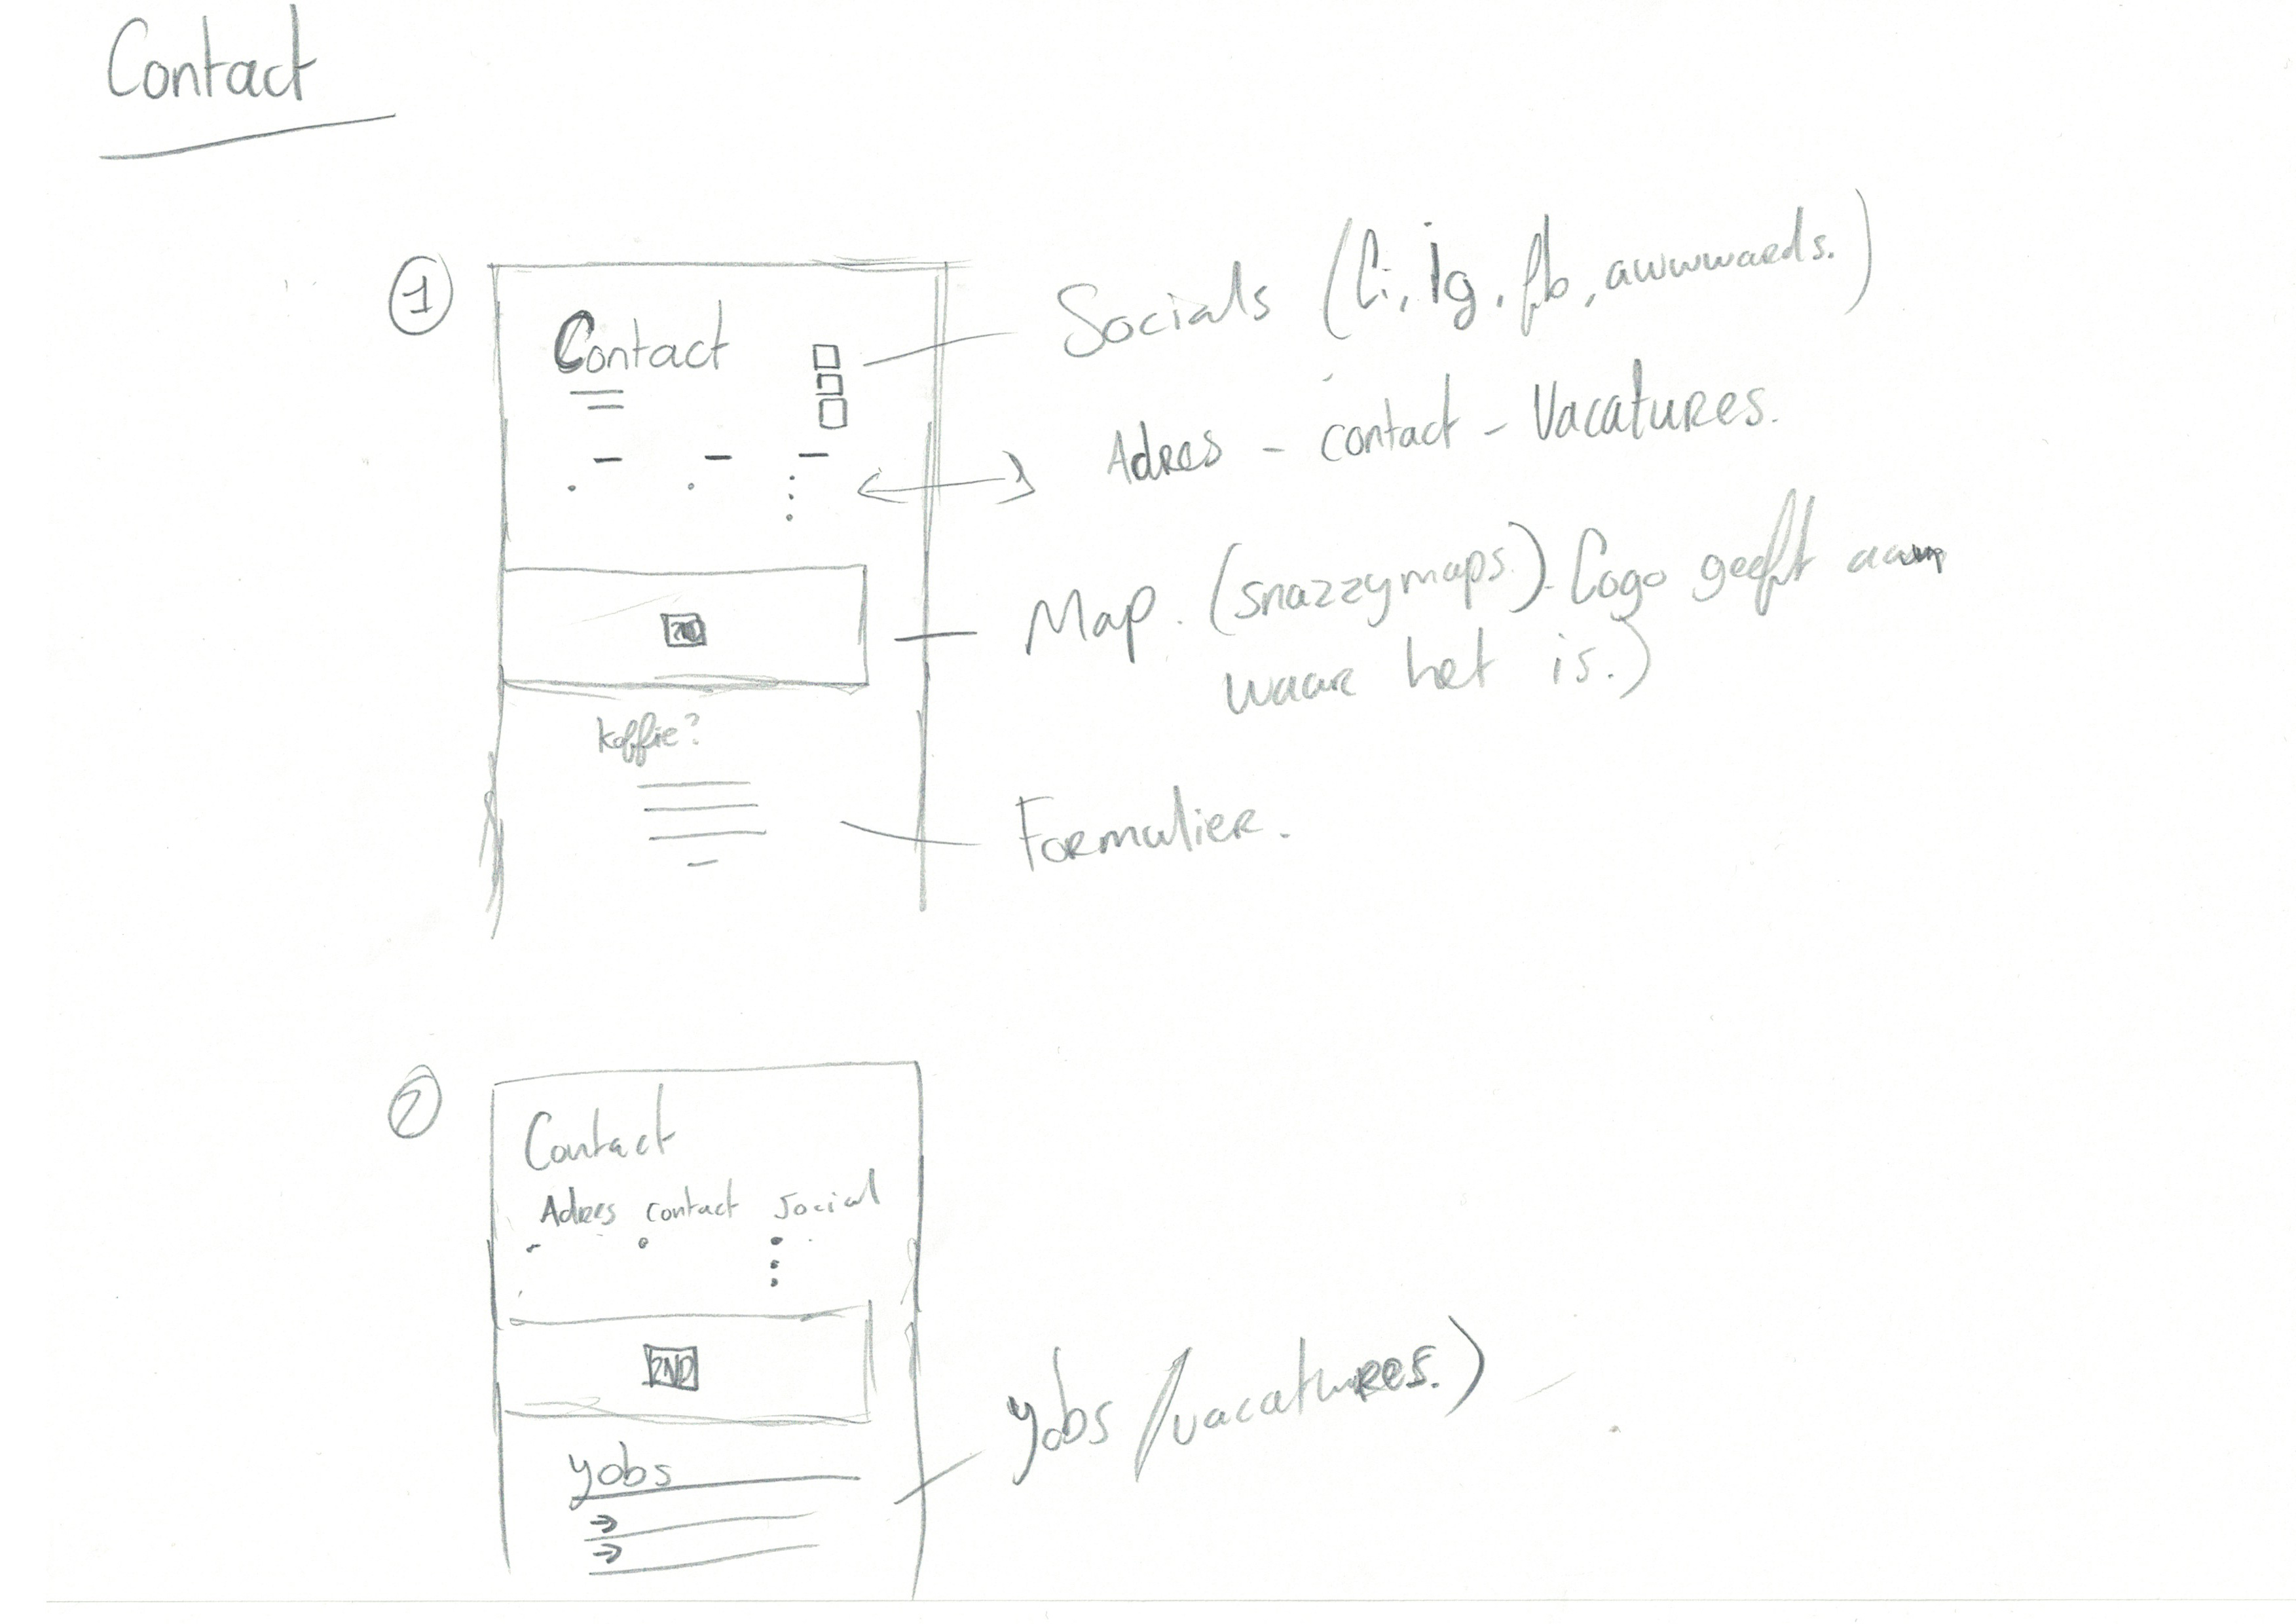 Contact
1
Contact
Socials (li, ig, fb, awwwards.)
Adres - contact - Vacatures.
Map. (snazzymaps). Logo geeft aan
waar het is.)
koffie?
Formulier.
2
Contact
Adres contact social
2ND
yobs
yobs /vacatures.)